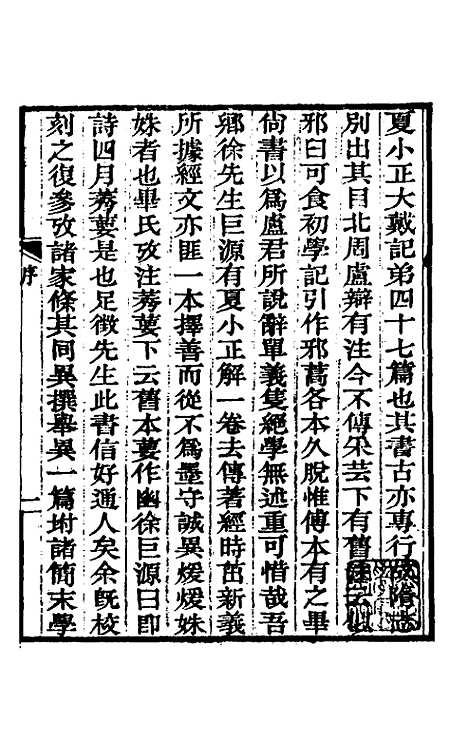 夏小正大戴記弟四十七篇也其書古亦專行故隋志
別出其目北周盧辯有注今不傳采芸下有舊注云似
邪曰可食初學記引作邪蒿各本久脫惟傅本有之畢
尙書以爲盧君所說辭單義隻絕學無述重可惜哉吾
鄉徐先生巨源有夏小正解一卷去傳著經時茁新義
所據經文亦匪一本擇善而從不爲墨守誠異煖煖姝
姝者也畢氏攷注莠葽下云舊本葽作幽徐巨源曰卽
詩四月莠葽是也足徵先生此書信好通人矣余旣校
刻之復參攷諸家條其同異撰舉異一篇坿諸簡末學
序
二